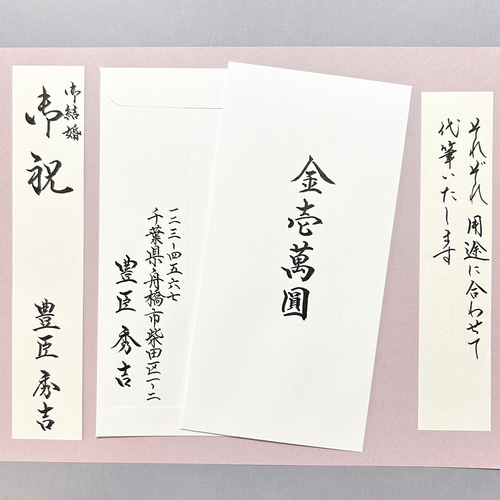 それぞれ 用途に合わせて
代筆いたします
金壱萬圓
一二三-四五六七
千葉県舟橋市柴田区一ノ二
豊臣 秀吉
御結婚
御祝
豊臣 秀吉